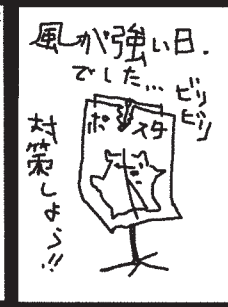 風が強い日.
でした…
ビリ
ビリ
ポスタ
対策しよう!!